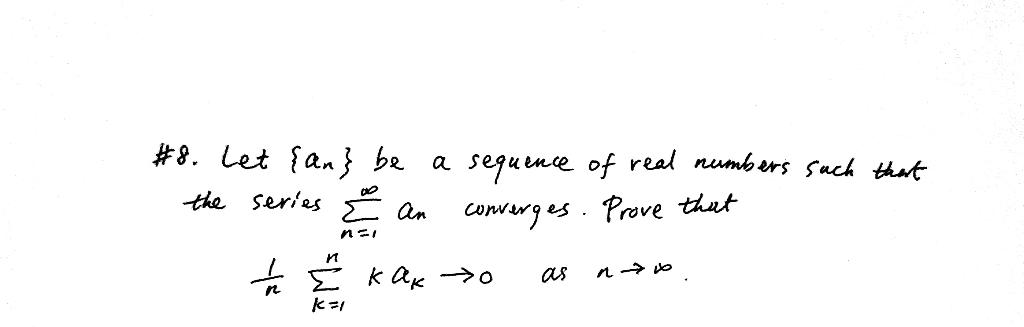 #8. Let {an} be a sequence of real numbers such that
the series ∞∑n=1 an converges. Prove that
1/n n∑k=1 k ak → 0 as n → ∞.